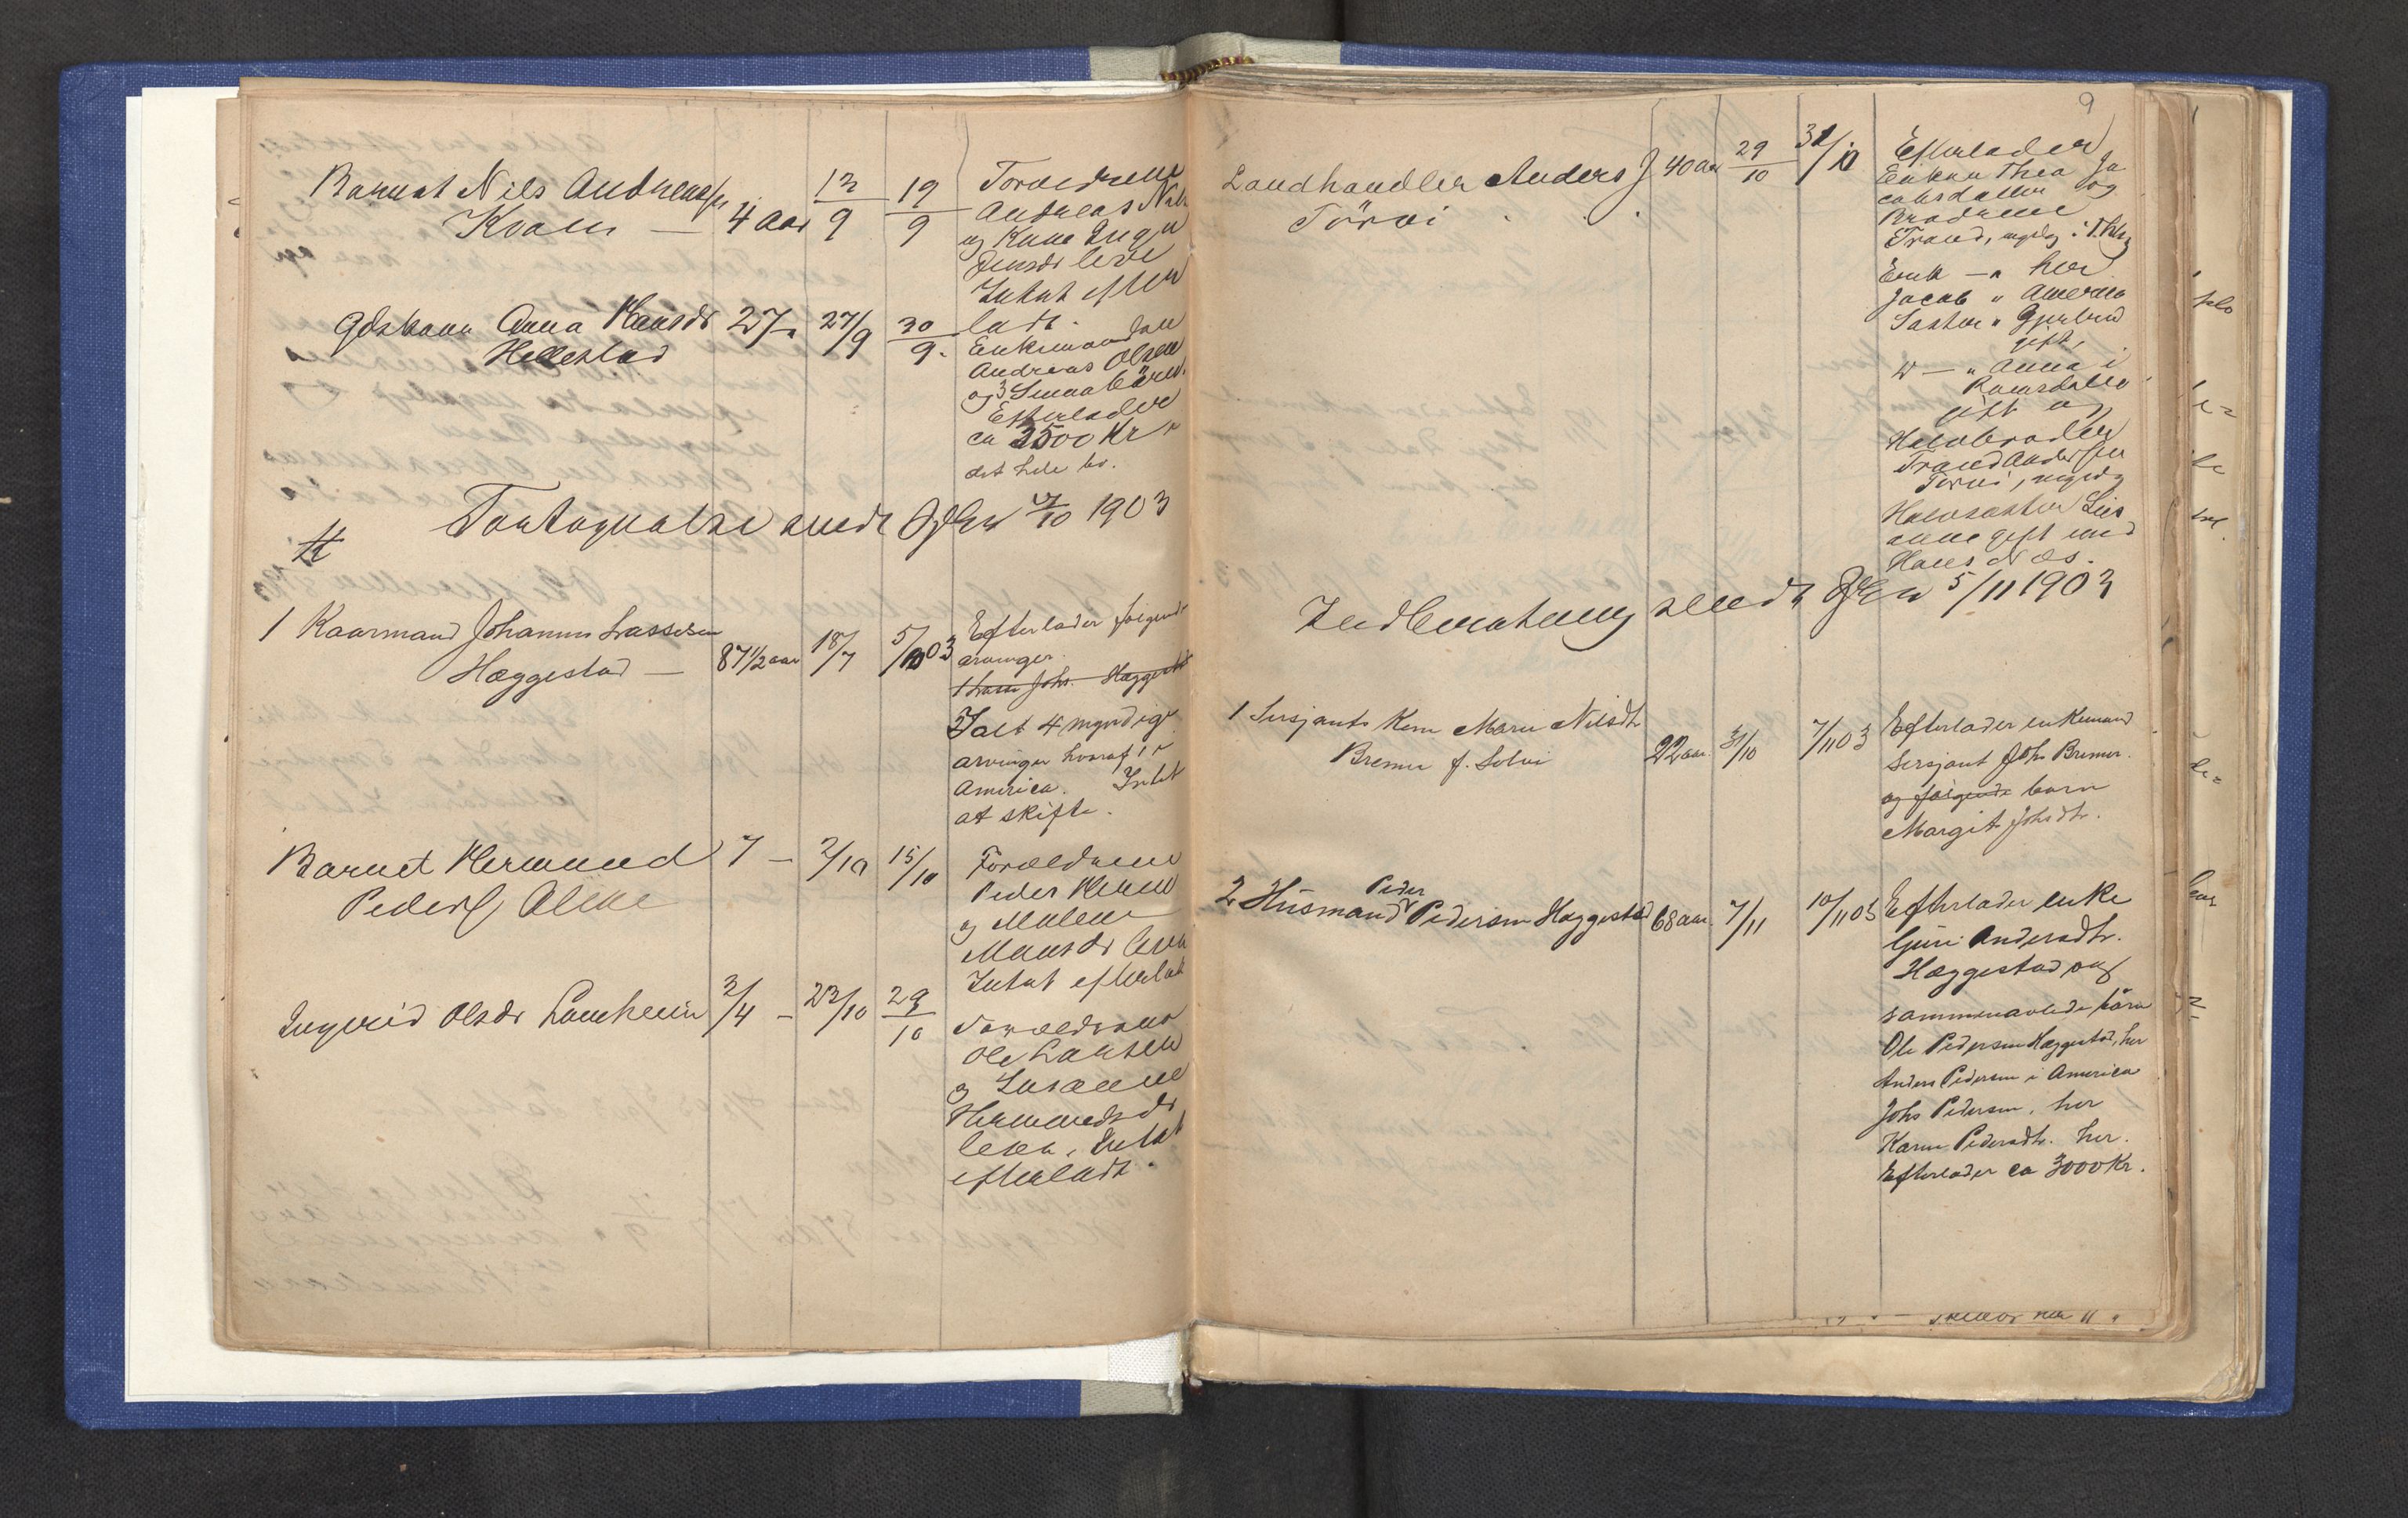 Barnet Nils Andreass.
Kvam — 4 aar 12/9 19/9
Forældrene
Andreas Nils
og Anne Inga
Jensdr leve
Intet efter
ladt.
Gdskone Anna Hansdr 27 27/9 30/9.
Hellestad
Enkemand
Andreas Olsen
og 3 Smaabörn.
Efterlader
ca 3500 Kr
det hele bo.
Fortegnelse sendt 7/10 1903
1 Kaarmand Johannes Lassesen
Hæggestad — 87 1/2 aar 18/7 5/10 03
Efterlader følgende
arvinger.
1 Lasse Johs. Hæggestad
Ialt 4 myndige
arvinger hvoraf 1 i
America. Intet
at skifte.
Barnet Hermund 7 — 2/10 15/10
Peders.
Forældrene
Peder
og Malene
Maansdr leve
Intet efterladt
Ingerid Olsdr 3/4 — 23/10 29/10
Forældrene
Ole Larsen
og
Hermundsdr
leve, Intet
efterladt.
9
Landhandler Anders J. 40 aar 29/10 31/10
Törvi
Efterlader
Enken Thea Ja
cobsdatter og
Brødrene
Trond, myndig i
Erik — " her
Jacob " America
Søster " Gjertrud
gift,
" — " Anna i
Romsdalen
gift og
Halvbroder
Trond Anderssen
Törvi, myndig
Halvsøster Lis
anne gift med
Hans Næs.
Indberetning sendt 5/11 1903
1 Sersjants Kone Marie Nilsdtr.
Bremer f. Solvi 22 aar. 31/10 7/11 03
Efterlader enkemand
Sersjant Johs Bremer.
og følgende barn
Margit Johsdtr.
2 Husmand Peder Pedersen Hæggestad 68 aar. 7/11 10/11 03
Efterlader enke
Guri Andersdtr.
Hæggestad og
sammenavlede børn
Ole Pedersen Hæggestad, her
Anders Pedersen i America
Johs Pedersen, her
Karen Pedersdtr. her.
Efterlader ca 3000 Kr.